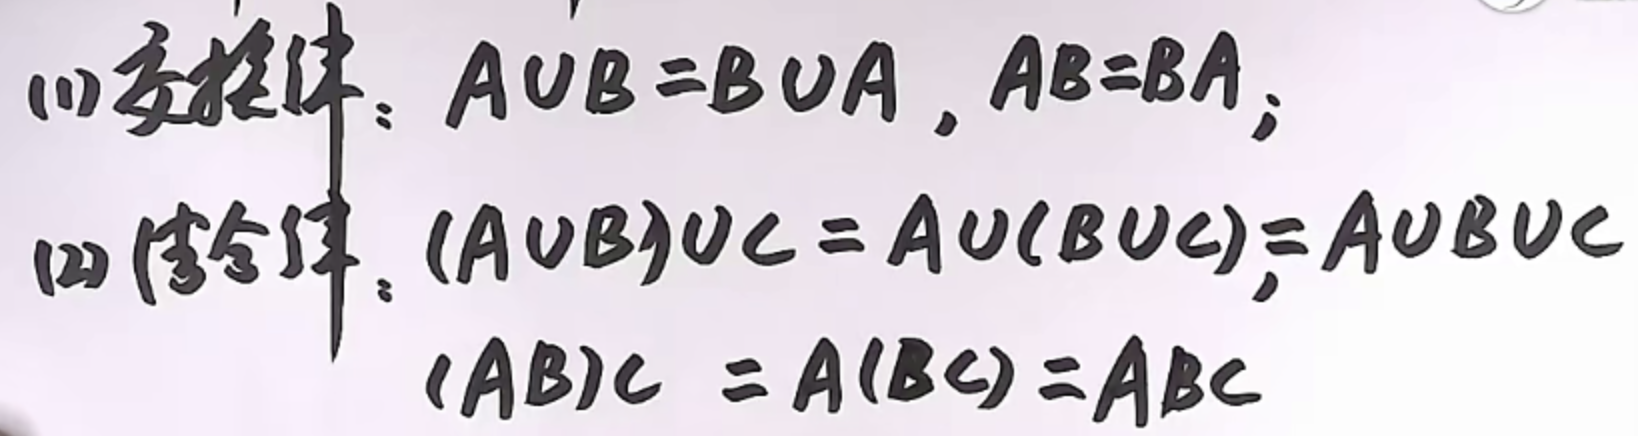 (1) 交换律: A∪B=B∪A, AB=BA;
(2) 结合律: (A∪B)∪C = A∪(B∪C);= A∪B∪C
(AB)C = A(BC) = ABC